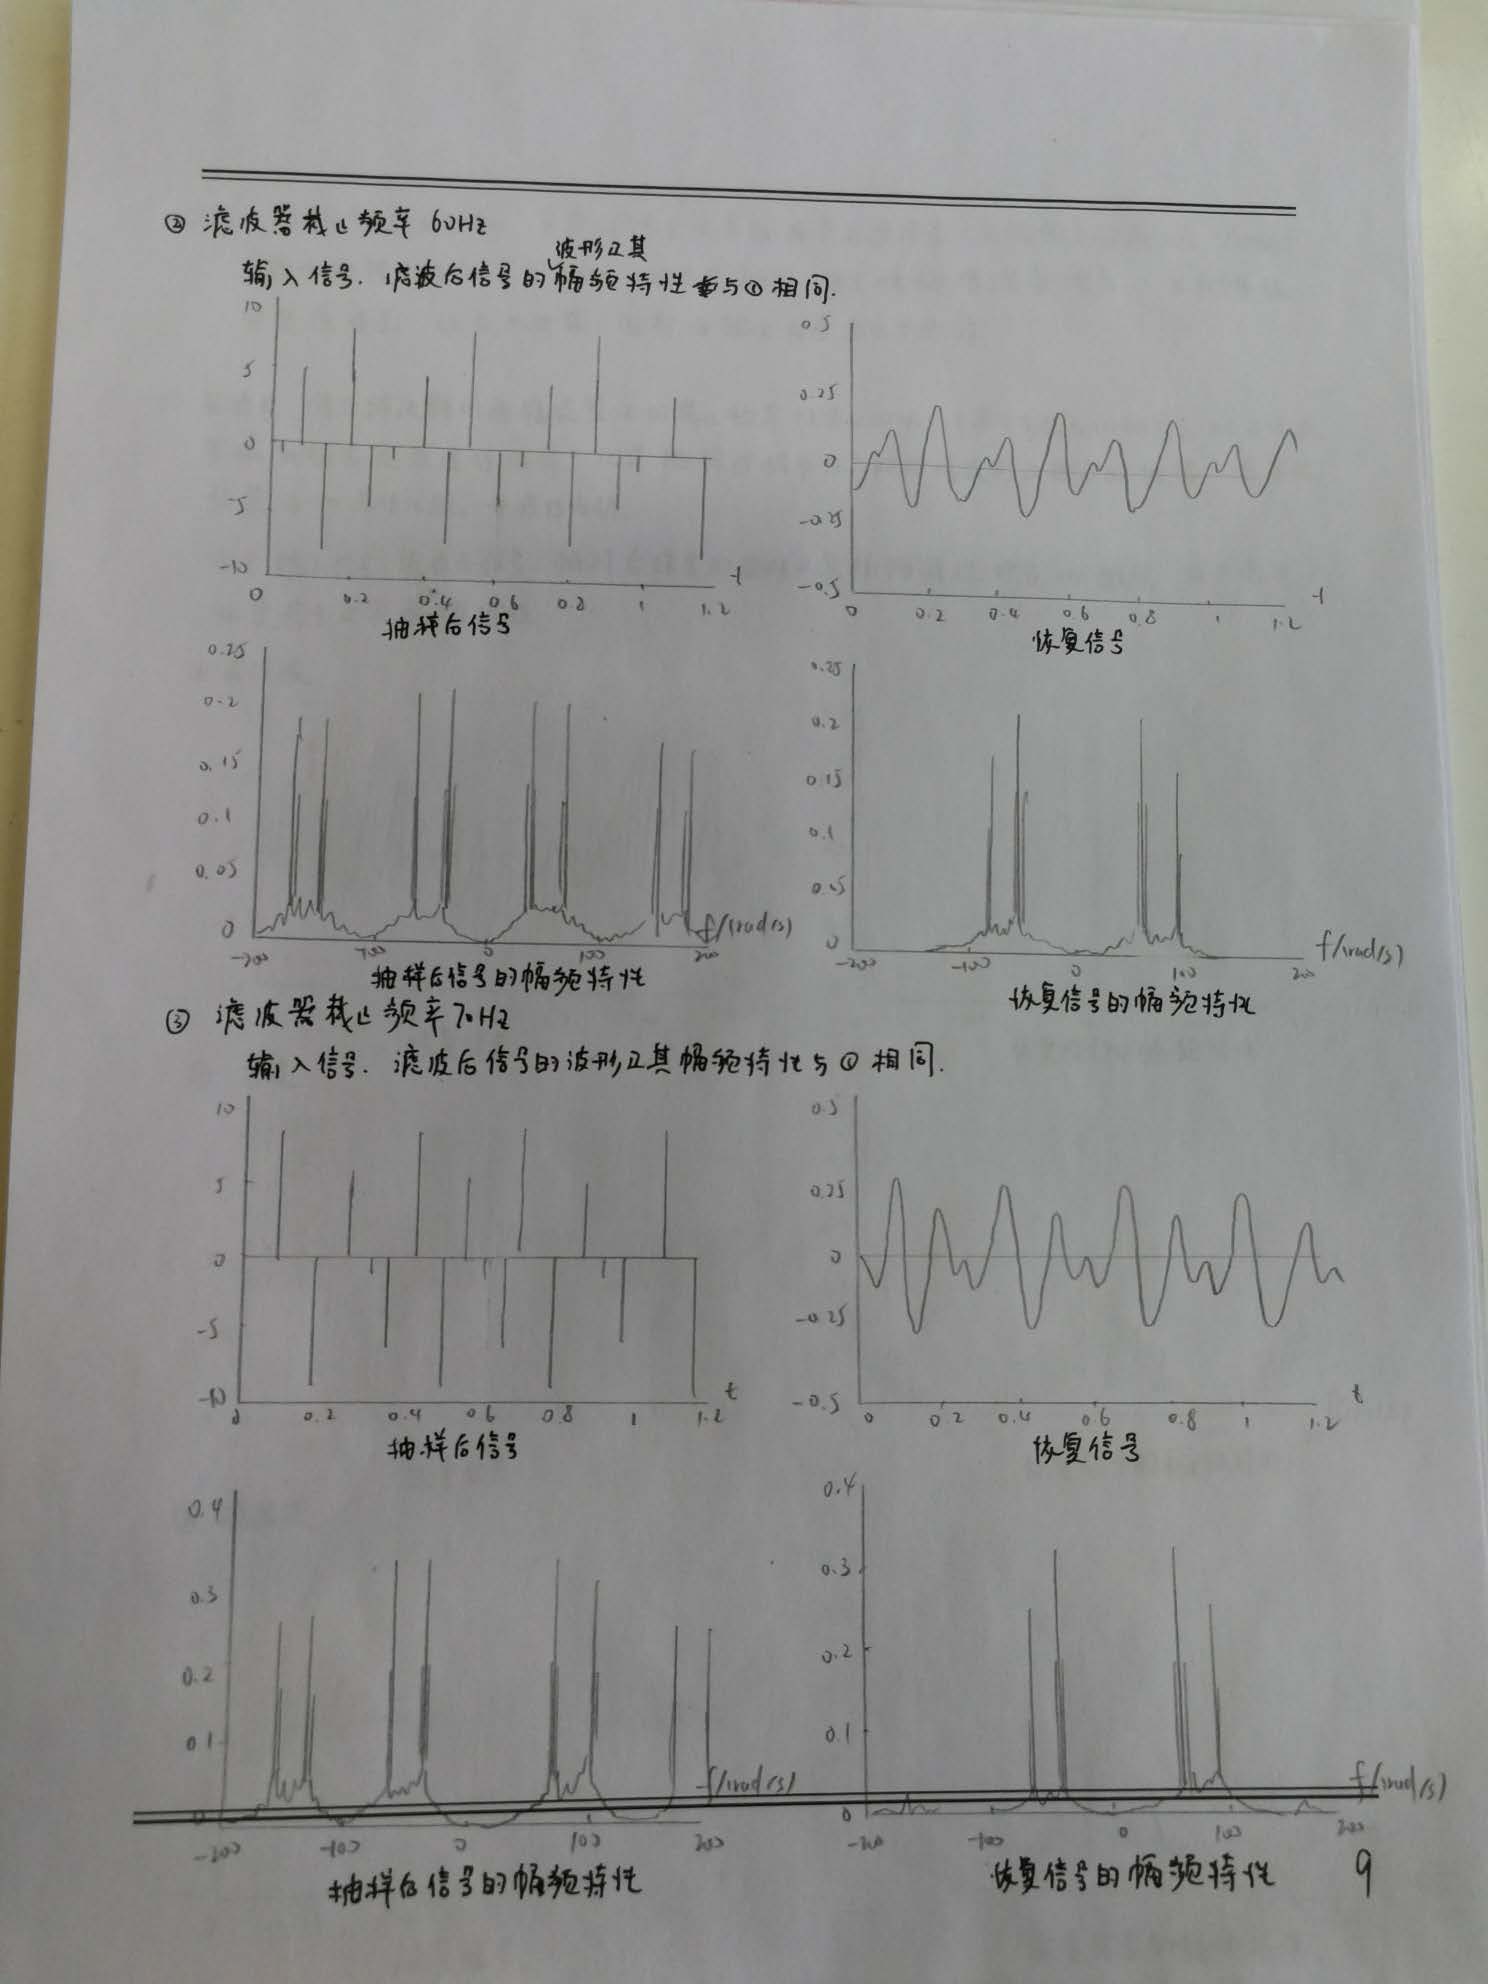 ② 滤波器截止频率 60Hz
波形及其
输入信号. 滤波后信号的幅频特性与①相同.
10
5
0
-5
-10
0 0.2 0.4 0.6 0.8 1 1.2
t
抽样后信号
0.5
0.25
0
-0.25
-0.5
0 0.2 0.4 0.6 0.8 1 1.2
t
恢复信号
0.25
0.2
0.15
0.1
0.05
0
-200 -100 0 100 200
f/(rad/s)
抽样后信号的幅频特性
0.25
0.2
0.15
0.1
0.05
0
-200 -100 0 100 200
f/(rad/s)
恢复信号的幅频特性
③ 滤波器截止频率70Hz
输入信号. 滤波后信号的波形及其幅频特性与①相同.
10
5
0
-5
-10
0 0.2 0.4 0.6 0.8 1 1.2
t
抽样后信号
0.5
0.25
0
-0.25
-0.5
0 0.2 0.4 0.6 0.8 1 1.2
t
恢复信号
0.4
0.3
0.2
0.1
0
-200 -100 0 100 200
f/(rad/s)
抽样后信号的幅频特性
0.4
0.3
0.2
0.1
0
-200 -100 0 100 200
f/(rad/s)
恢复信号的幅频特性
9